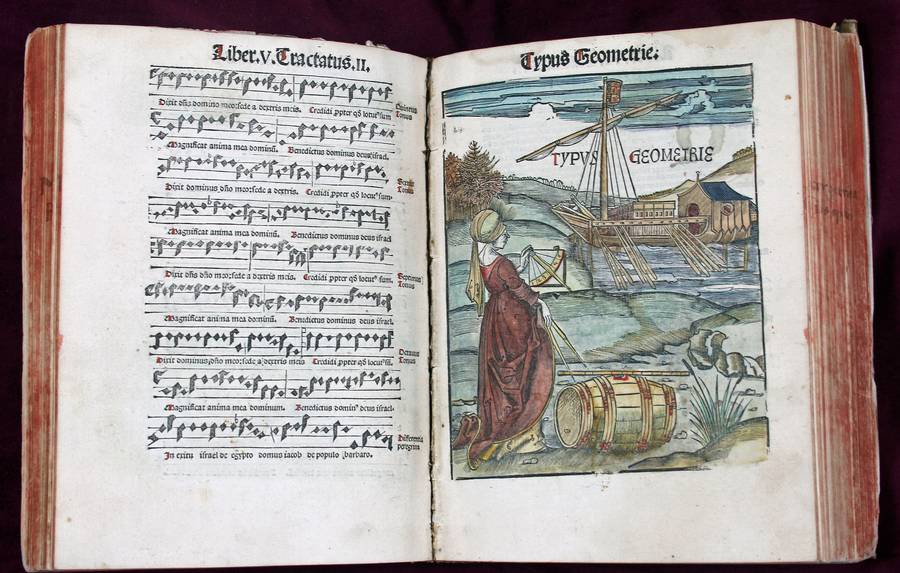 Liber.V.Tractatus.II.
Dixit dñs domino meo:sede a dextris meis. Credidi ꝓpter qđ locutꝰsum
Quintus
Tonus
Magnificat anima mea dominũ. Benedictus dominus deus israel.
Dixit dominus dño meo:sede a dextris. Credidi ꝓpter qđ locutꝰ sum.
Sextus
Tonus
Magnificat anima mea dominũ. Benedictus dominus deus israel
Dixit dñs dño meo:sede a dextris meis. Credidi ꝓpter qđ locutꝰ sum.
Septimus
Tonus
Magnificat anima mea dominũ. Benedictus dominus deus israel.
Dixit dominus dño meo:sede a dextris meis Credidi ꝓpter qđ locutꝰ
Octauus
Tonus
Magnificat anima mea dominum. Benedictus dominꝰ deus israel.
Differentia
peregrini
In exitu israel de egypto domus iacob de populo barbaro.
Typus Geometrie:
TYPUS GEOMETRIE